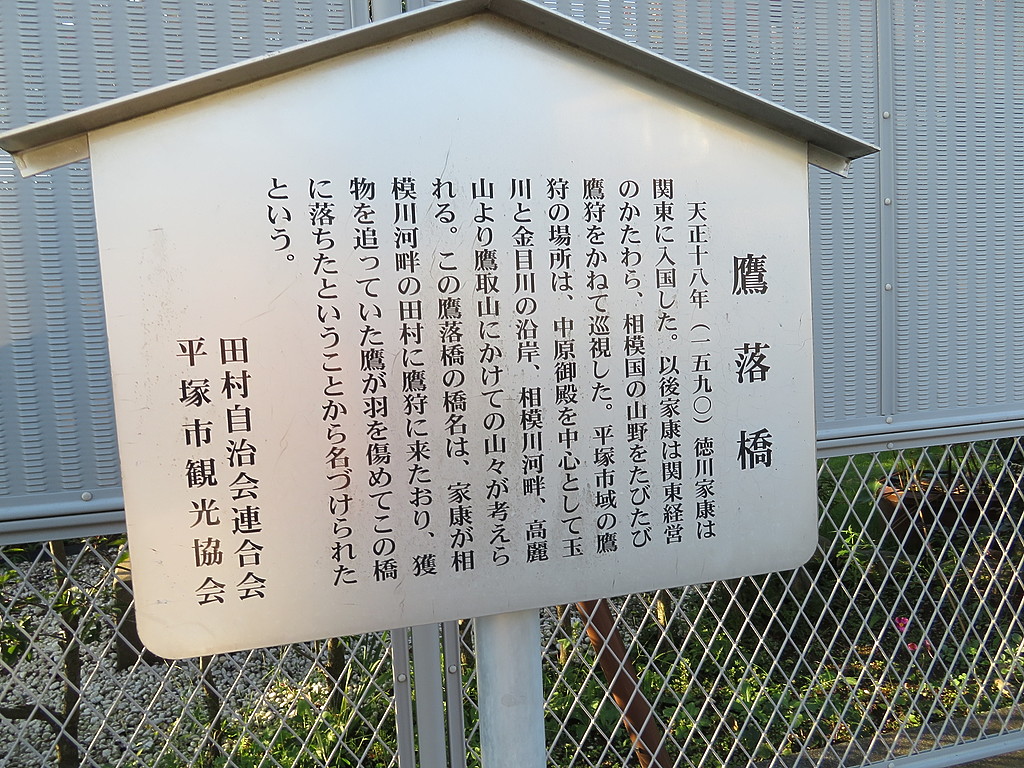 鷹落橋
天正十八年(一五九〇)徳川家康は
関東に入国した。以後家康は関東経営
のかたわら、相模国の山野をたびたび
鷹狩をかねて巡視した。平塚市域の鷹
狩の場所は、中原御殿を中心として玉
川と金目川の沿岸、相模川河畔、高麗
山より鷹取山にかけての山々が考えら
れる。この鷹落橋の橋名は、家康が相
模川河畔の田村に鷹狩に来たおり、獲
物を追っていた鷹が羽を傷めてこの橋
に落ちたということから名づけられた
という。
田村自治会連合会
平塚市観光協会